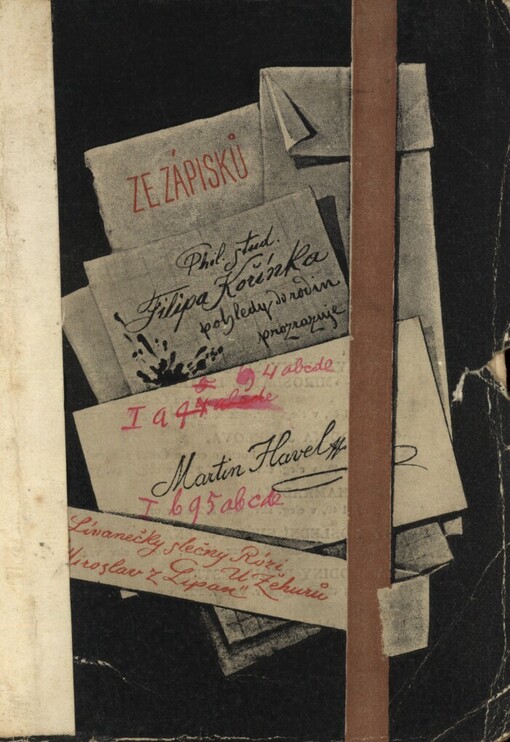 ZE ZÁPISKŮ
Phil. stud.
Filipa Kořínka
pohledy do rodin
prozrazuje
94abcde
I a 94abcde
Martin Havel
I b 95abcde
Lívanečky slečny Rózi
U Zéhurů
Miroslav z Lipan"